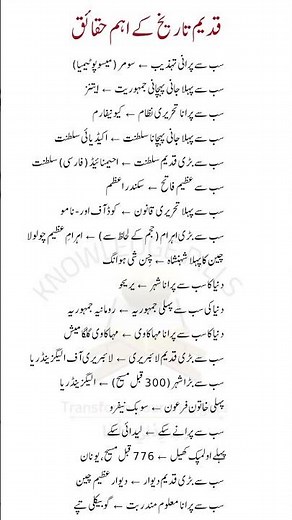 قدیم تاریخ کے اہم حقائق
سب سے پرانی تہذیب ← سومر (میسوپوٹیمیا)
سب سے پہلا جانی پہچانی جمہوریت ← ایتھنز
سب سے پرانا تحریری نظام ← کیونیفارم
سب سے پہلا جانی پہچانا سلطنت ← اکیڈیائی سلطنت
سب سے بڑی قدیم سلطنت ← اچیمنائیڈ (فارسی) سلطنت
سب سے عظیم فاتح ← سکندر اعظم
سب سے پہلا تحریری قانون ← کوڈ آف اور-نامو
سب سے بڑی اہرام (حجم کے لحاظ سے) ← اہرامِ عظیم چولولا
چین کا پہلا شہنشاہ ← چِن شی ہوانگ
دنیا کا سب سے پرانا شہر ← یریحو
دنیا کی سب سے پہلی جمہوریہ ← رومانیہ جمہوریہ
دنیا کا سب سے پرانا مہاکاوی ← مہاکاوی گلگامیش
سب سے بڑی قدیم لائبریری ← لائبریری آف الیگزینڈریا
سب سے بڑا شہر (300 قبل مسیح) ← الیگزینڈریا
پہلی خاتون فرعون ← سوبک نیفرو
سب سے پرانے سکے ← لیدیائی سکے
پہلے اولمپک کھیل ← 776 قبل مسیح، یونان
سب سے بڑی قدیم دیوار ← دیوار عظیم چین
سب سے پرانا معلوم مندر بت ← گوبیکلی تپے